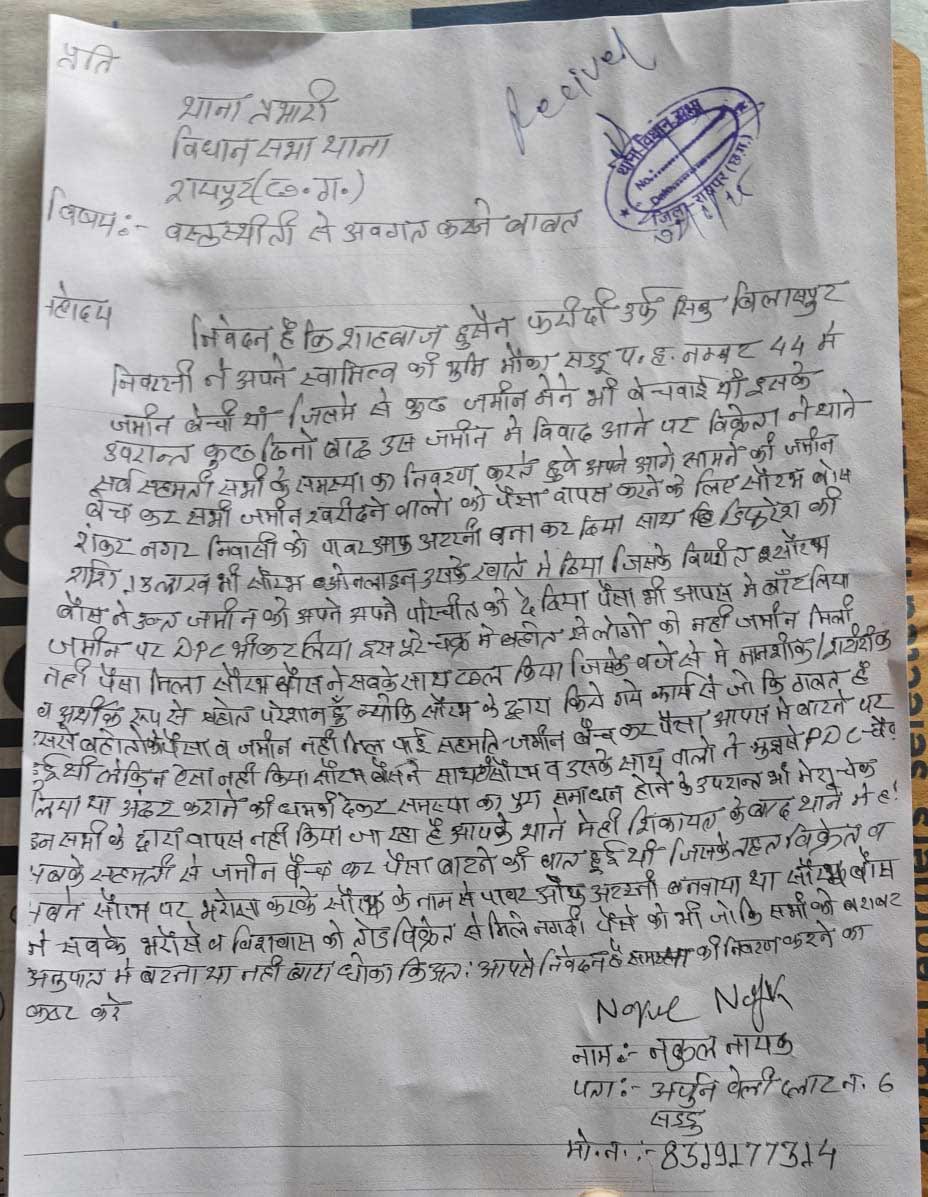 प्रति
थाना प्रभारी
विधान सभा थाना
रायपुर (छ.ग.)
Recived
थाना विधान सभा
No.
Date
जिला-रायपुर (छ.ग.)
विषय :- वस्तुस्थीती से अवगत कराने बाबत
महोदय
निवेदन है कि शाहबाज हुसैन फरीदी उर्फ सिबु बिलासपुर
निवासी ने अपने स्वामित्व की भुमि मौका सड्डू प. ह. नम्बर 44 मे
जमीन बेची थी जिसमे से कुछ जमीन मेने भी बेचवाई थी इसके
उपरान्त कुछ दिनो बाद उस जमीन मे विवाद आने पर विक्रेता ने थाने
सर्व सहमती सभी के समस्या का निवरण करते हुवे अपने आगे सामने की जमीन
बेच कर सभी जमीन खरीदने वालो को पैसा वापस करने के लिए सौरभ बोस
शंकर नगर निवासी को पावर आफ अटरनी बना कर दिया साथ डिफरेश की
राशि 13 लाख भी सौरभ ओनलाइन उसके खाते मे दिया जिसके विपरीत सौरभ
बोस ने उक्त जमीन को अपने अपने परिचीत को दे दिया पैसा भी आपस मे बाँट लिया
जमीन पर DPC भी कर लिया इस पुरे चक्र मे बहोत से लोगो को नही जमीन मिली
नही पैसा मिला सौरभ बोस ने सबके साथ छल किया जिसके वजे से मे मानशीक/शारीरीक
व आर्थीक रूप से बहोत परेशान हुँ क्योकि सौरभ के द्वारा किये गये कार्य से जो कि गलत है
इससे बहोतो के पैसा व जमीन नही मिल पाई सहमति जमीन बेच कर पैसा आपस मे बाटने पर
हुई थी लेकिन ऐसा नही किया सौरभ बोस ने साथ ही सौरभ व उसके साथ वालो ने मुझसे PDC चैक
लिया था अंदर कराने की धमकी देकर समस्या का पुरा समाधन होने के उपरान्त भी मेरा चेक
इन सभी के द्वारा वापस नही किया जा रहा है आपके थाने मे ही शिकायत के बाद थाने मे ही
सबके सहमती से जमीन बेच कर पैसा बाटने की बात हुई थी जिसके तहत विक्रेता व
सबने सौरभ पर भरोसा करके सौरभ के नाम से पावर ऑफ अटरनी बनवाया था सौरभ बोस
ने सबके भरोसे व विशवास को तोड विक्रेता से मिले नगदी पैसे को भी जो कि सभी को बराबर
अनुपात मे बटना था नही बाटा धोका कि अतः आपसे निवेदन है समस्या की निवरण करने का
कष्ट करे
नाम :- नकुल नायक
पता :- अर्जुन वेली प्लाट न. 6
सड्डु
मो. न. :- 8319177314